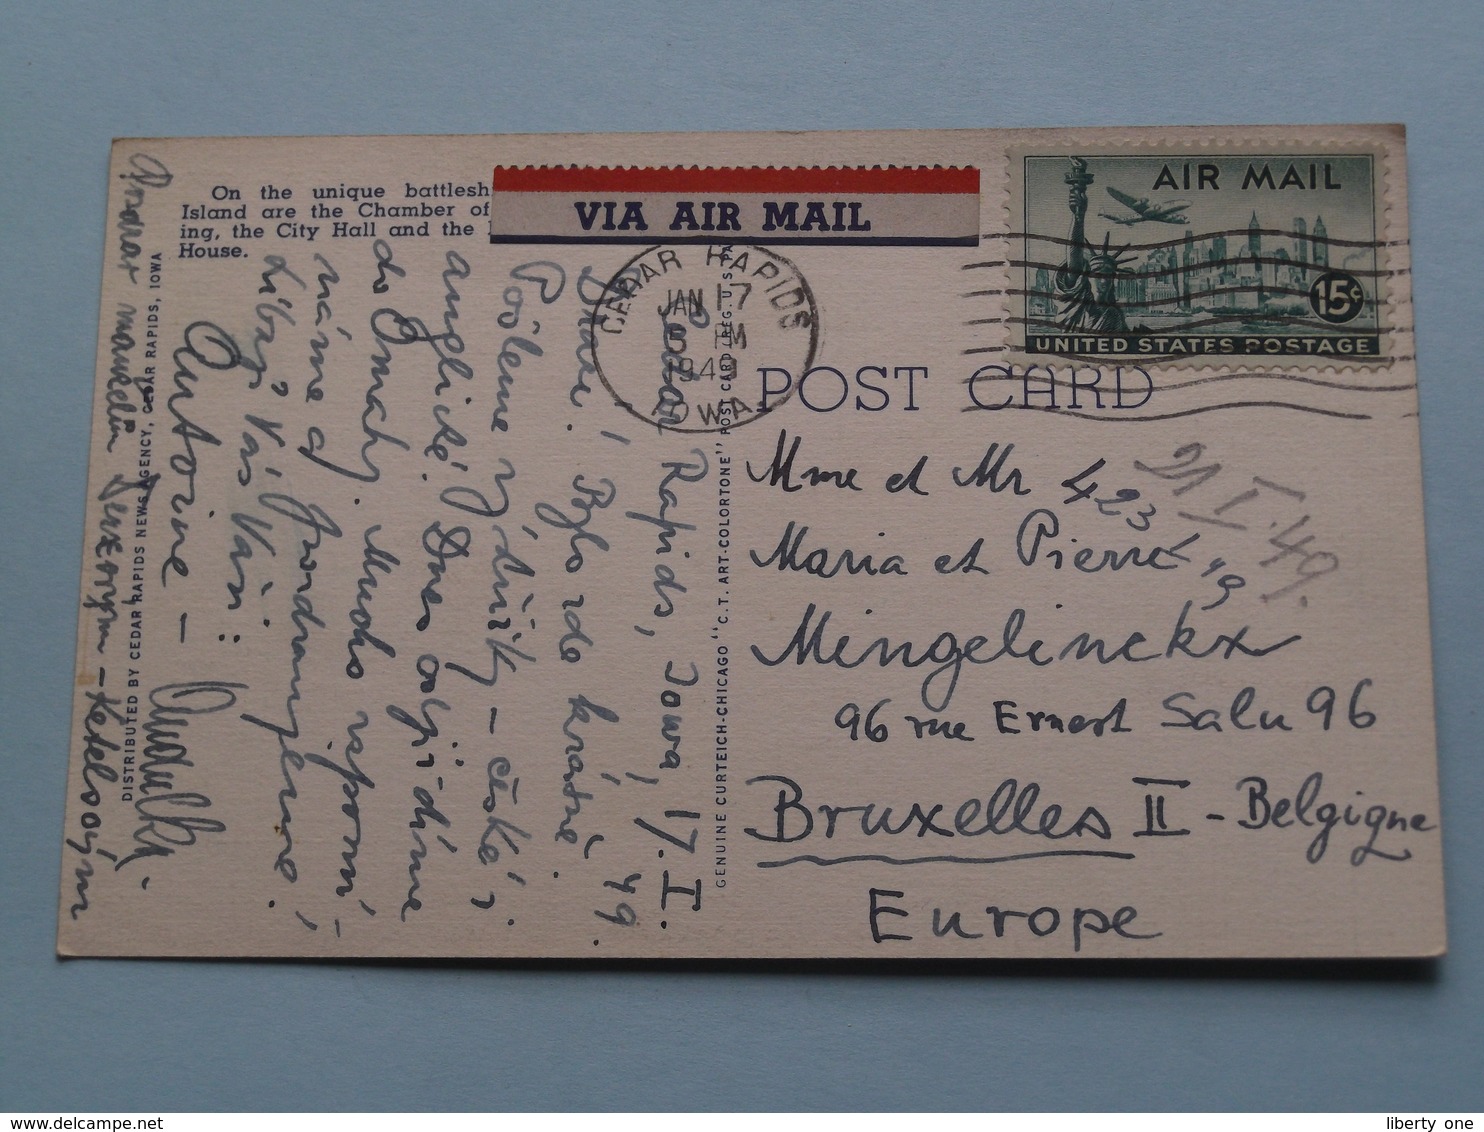 On the unique battlesh
Island are the Chamber of
ing, the City Hall and the
House.
VIA AIR MAIL
AIR MAIL
15¢
UNITED STATES POSTAGE
CEDAR RAPIDS
JAN 17
5 PM
1949
IOWA
POST CARD
Mme et Mr
Maria et Pierre
Mingelinckx
96 rue Ernest Salu 96
Bruxelles II - Belgique
Europe
423
21/I.49.
Cedar Rapids, Iowa, 17. I.
49.
Drazí! Bylo zde krásně.
výsluhy - české i
anglické. Dnes odjíždíme
do Omahy. Mnoho vzpomí-
náme a
Líbají Vás Vaši:
Antoine -
DISTRIBUTED BY CEDAR RAPIDS NEWS AGENCY, CEDAR RAPIDS, IOWA
GENUINE CURTEICH-CHICAGO "C.T. ART-COLORTONE" POST CARD (REG. U.S. PA
liberty one